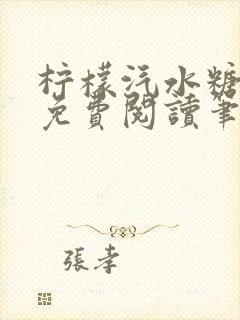 柠檬汽水糖
免費閱讀筆
張孝